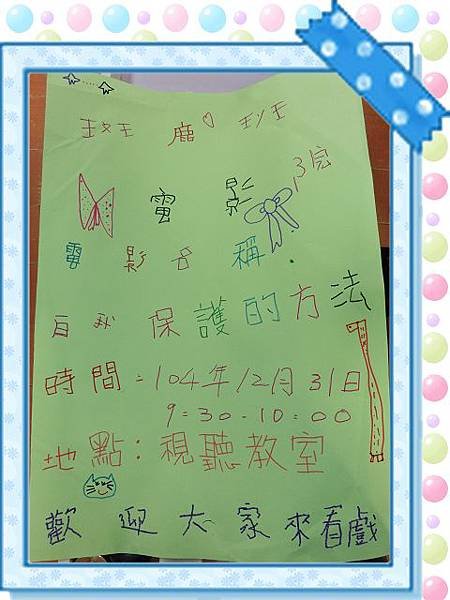 班鹿班
電影院
電影名稱：
自我保護的方法
時間：104年12月31日
9：30-10：00
地點：視聽教室
歡迎大家來看戲